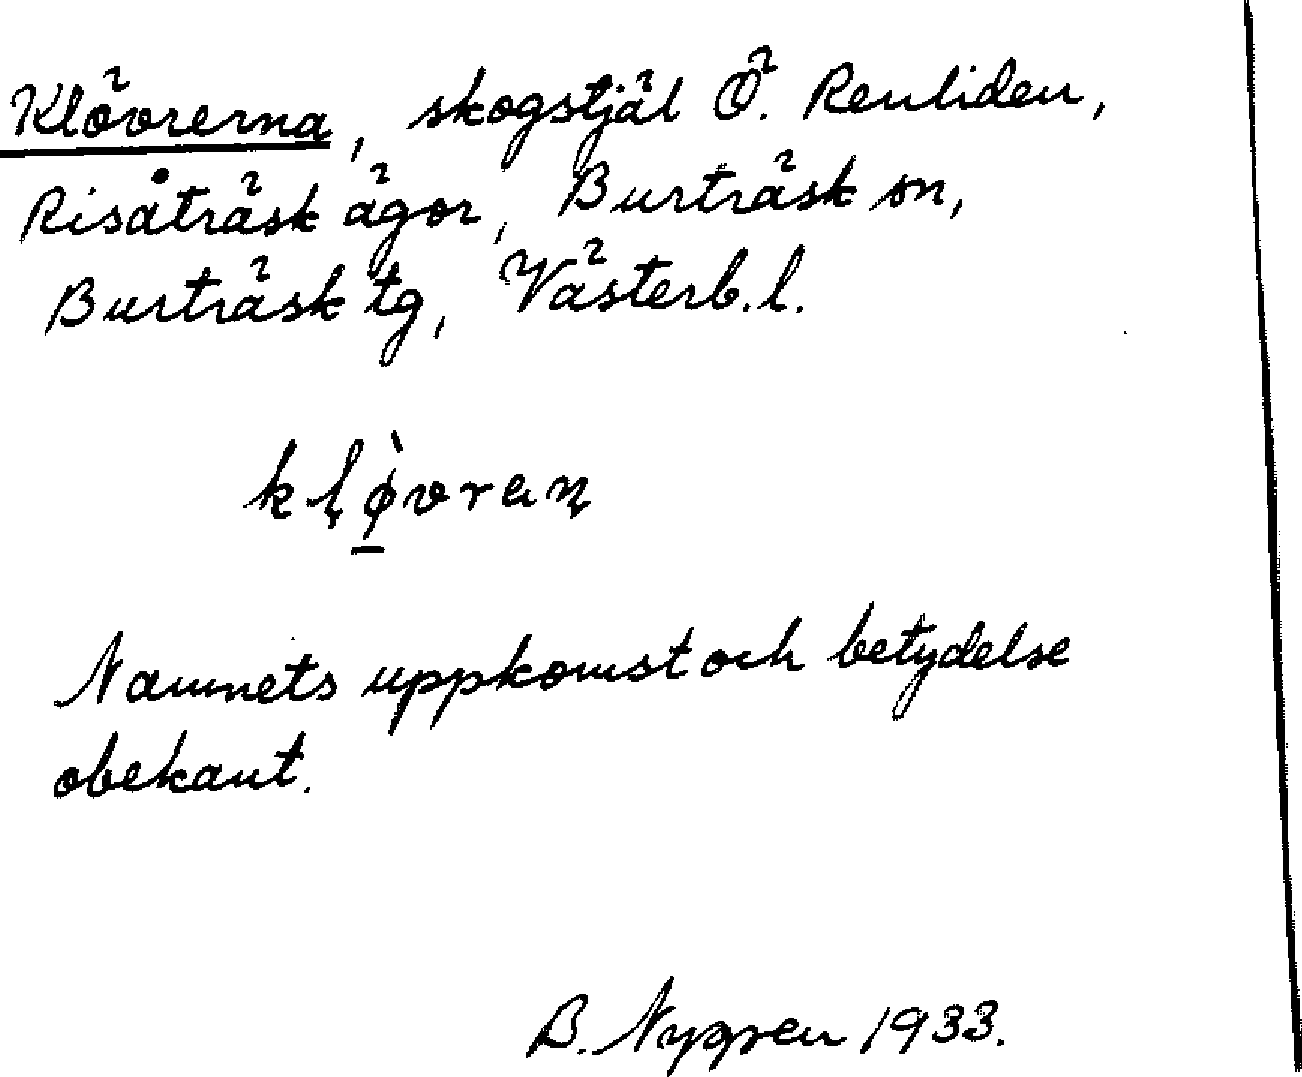 Klövrerna, skogstjäl Ö. Renliden,
Risåträsk ägor, Burträsk sn,
Burträsk tg, Västerb. l.
kl̥ø̠̀vran̥
Namnets uppkomst och betydelse
obekant.
B. Nygren 1933.